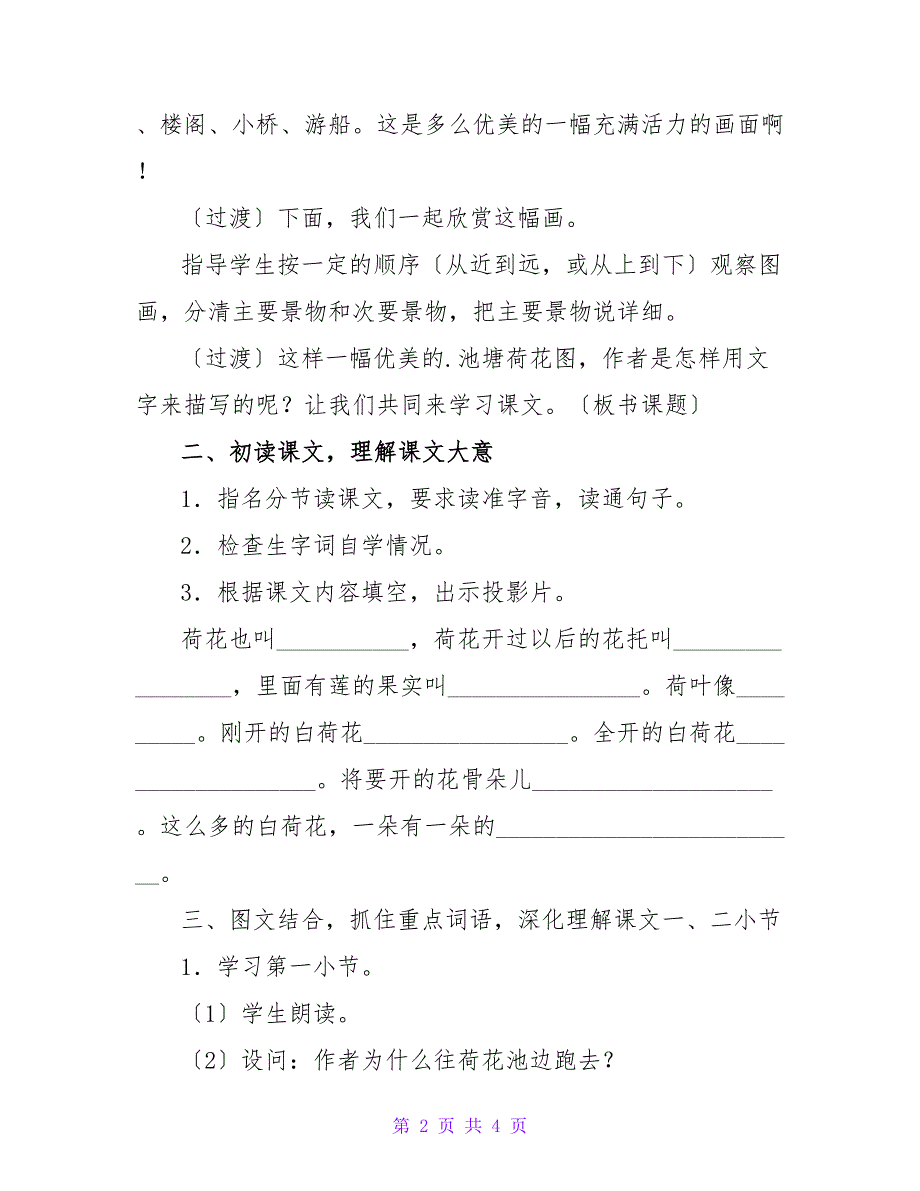 、楼阁、小桥、游船。这是多么优美的一幅充满活力的画面啊
！
〔过渡〕下面，我们一起欣赏这幅画。
指导学生按一定的顺序〔从近到远，或从上到下〕观察图
画，分清主要景物和次要景物，把主要景物说详细。
〔过渡〕这样一幅优美的.池塘荷花图，作者是怎样用文
字来描写的呢？让我们共同来学习课文。〔板书课题〕
二、初读课文，理解课文大意
1．指名分节读课文，要求读准字音，读通句子。
2．检查生字词自学情况。
3．根据课文内容填空，出示投影片。
荷花也叫___________，荷花开过以后的花托叫_________
________，里面有莲的果实叫________________。荷叶像____
_____。刚开的白荷花_________________。全开的白荷花____
_______________。将要开的花骨朵儿____________________
。这么多的白荷花，一朵有一朵的________________________
__。
三、图文结合，抓住重点词语，深化理解课文一、二小节
1．学习第一小节。
〔1〕学生朗读。
〔2〕设问：作者为什么往荷花池边跑去？
第 2 页 共 4 页